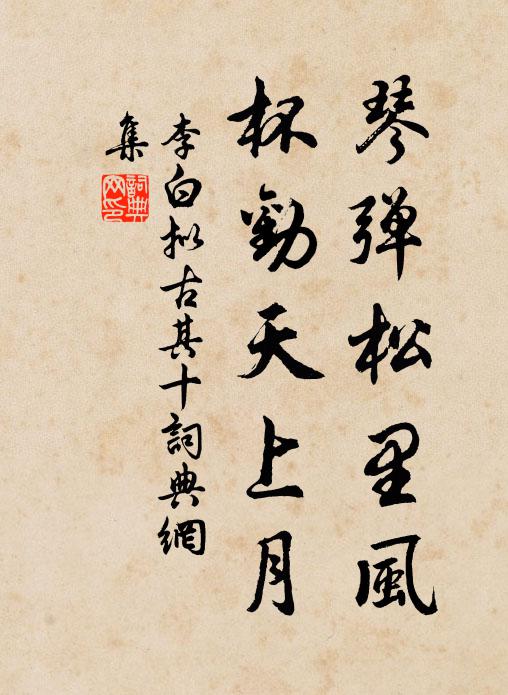 琴弹松里風
杯勸天上月
李白拟古其十詞典網
集
詞典
网印